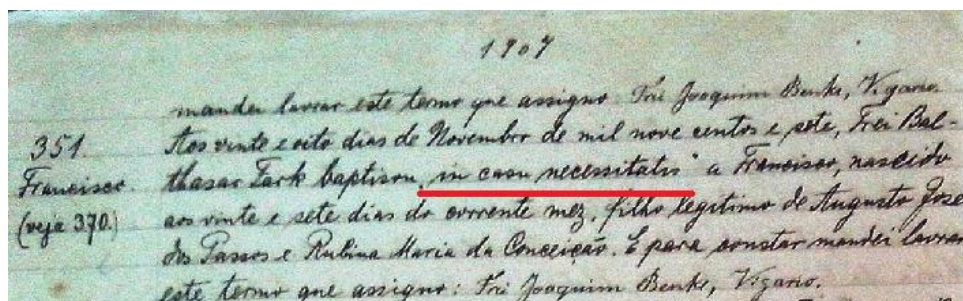 1907
mandei lavrar este termo que assigno: Frei Joaquim Benke, Vigario.
351. Aos vinte e oito dias de Novembro de mil nove centos e sete, Frei Bal-
Francisco. thasar Fark baptisou „in casu necessitatis" a Francisco, nascido
(veja 370.) aos vinte e sete dias do corrente mez, filho legitimo de Augusto José
dos Passos e Rubina Maria da Conceição. E para constar mandei lavrar
este termo que assigno: Frei Joaquim Benke, Vigario.